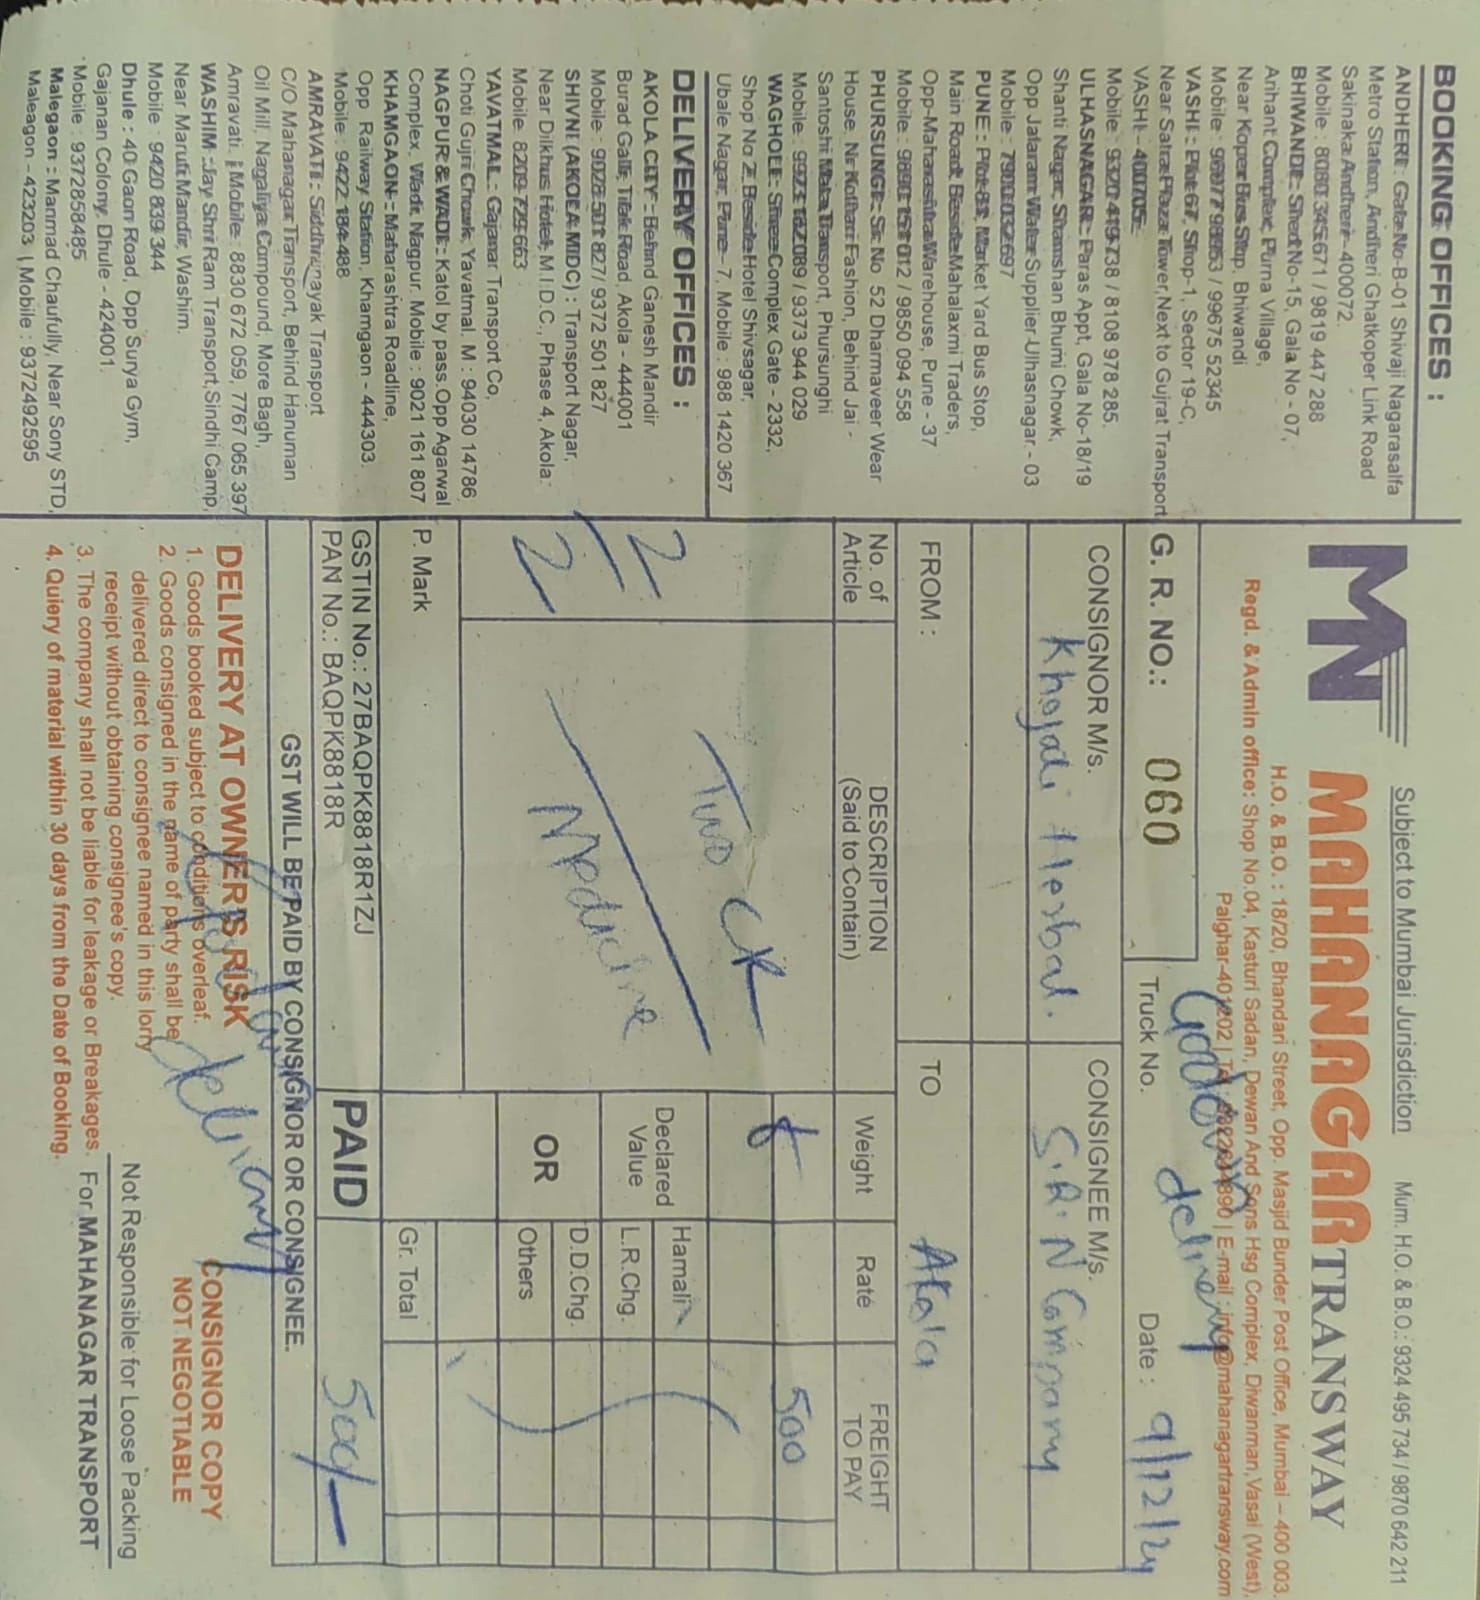 BOOKING OFFICES :
ANDHERI : Gala No-B-01 Shivaji Nagarasalfa
Metro Station, Andheri Ghatkoper Link Road
Sakinaka Andheri - 400072.
Mobile : 8080 345 671 / 9819 447 288
BHIWANDI : Shed No-15, Gala No - 07,
Arihant Complex, Purna Village,
Near Koper Bus Stop, Bhiwandi
Mobile : 96977 98853 / 99675 52345
VASHI : Plot 67, Shop-1, Sector 19-C,
Near Satra Plaza Tower, Next to Gujrat Transport
VASHI - 400705.
Mobile : 9320 419 738 / 8108 978 285.
ULHASNAGAR : Paras Appt, Gala No-18/19
Shanti Nagar, Shamshan Bhumi Chowk,
Opp Jafaram Water Supplier-Ulhasnagar - 03
Mobile : 7900 032 697
PUNE : Plot-83, Market Yard Bus Stop,
Main Road, Beside Mahalaxmi Traders,
Opp-Maharashtra Warehouse, Pune - 37
Mobile : 9890 151 012 / 9850 094 558
PHURSUNGI : Sr. No 52 Dharmaveer Wear
House, Nr Kothari Fashion, Behind Jai -
Santoshi Mata Transport, Phursunghi
Mobile : 9923 182 089 / 9373 944 029
WAGHOLI : Shree Complex Gate - 2332,
Shop No 2, Beside Hotel Shivsagar,
Ubale Nagar, Pune - 7, Mobile : 988 1420 367
DELIVERY OFFICES :
AKOLA CITY - Behind Ganesh Mandir
Burad Galli, Tilak Road Akola - 444001
Mobile : 9028 501 827 / 9372 501 827
SHIVNI (AKOLA MIDC) : Transport Nagar,
Near Dilkhus Hotel, M.I.D.C., Phase 4, Akola
Mobile : 8209 729 663
YAVATMAL : Gajanar Transport Co,
Choti Gujri Chowk, Yavatmal, M : 94030 14786
NAGPUR & WADI : Katol by pass Opp Agarwal
Complex, Wadi, Nagpur. Mobile : 9021 161 807
KHAMGAON - Maharashtra Roadline,
Opp Railway Station, Khamgaon - 444303.
Mobile : 9422 184 488
AMRAVATI : Siddhivinayak Transport
C/O Mahanagar Transport, Behind Hanuman
Oil Mill, Nagaliya Compound, More Bagh,
Amravati. Mobile : 8830 672 059, 7767 065 397
WASHIM - Jay Shri Ram Transport, Sindhi Camp,
Near Maruti Mandir, Washim.
Mobile : 9420 839 344
Dhule : 40 Gaon Road, Opp Surya Gym,
Gajanan Colony, Dhule - 424001.
Mobile : 9372858485
Malegaon : Manmad Chaufully, Near Sony STD,
Maleagon - 423203 | Mobile : 9372492595
Subject to Mumbai Jurisdiction
Mum. H.O. & B.O.: 9324 495 734 / 9870 642 211
MN MAHANAGAR TRANSWAY
H.O. & B.O. : 18/20, Bhandari Street, Opp. Masjid Bunder Post Office, Mumbai – 400 003.
Regd. & Admin office: Shop No.04, Kasturi Sadan, Dewan And Sons Hsg Complex, Diwanman, Vasai (West),
Palghar-401202 | E-mail : info@mahanagartransway.com
Godown delivery
G. R. NO.: 060
Truck No.
Date : 9/12/24
CONSIGNOR M/s.
CONSIGNEE M/s.
Khojati Herbal.
S.R.N Company
FROM :
TO
Akola
No. of Article
DESCRIPTION (Said to Contain)
Weight
Rate
FREIGHT TO PAY
2
Two
500
2
Medicine
Declared Value
OR
Hamali
L.R.Chg.
D.D.Chg.
Others
P. Mark
Gr. Total
GSTIN No.: 27BAQPK8818R1ZJ
PAN No.: BAQPK8818R
PAID
500/-
GST WILL BE PAID BY CONSIGNOR OR CONSIGNEE.
DELIVERY AT OWNER'S RISK
1. Goods booked subject to conditions overleaf.
2. Goods consigned in the name of party shall be
delivered direct to consignee named in this lorry
receipt without obtaining consignee's copy.
3. The company shall not be liable for leakage or Breakages.
4. Quiery of material within 30 days from the Date of Booking.
delivery
CONSIGNOR COPY
NOT NEGOTIABLE
Not Responsible for Loose Packing
For MAHANAGAR TRANSPORT